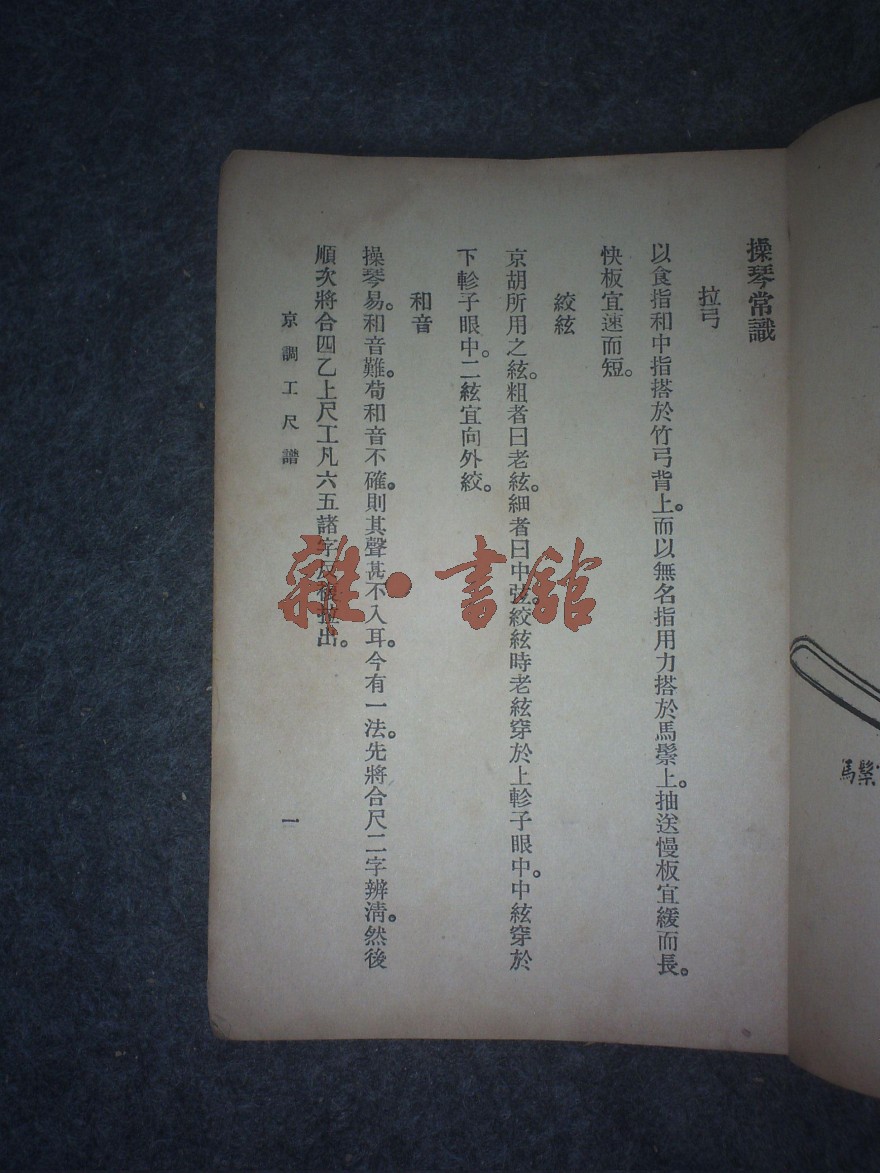 操琴常識
拉弓
以食指和中指搭於竹弓背上。而以無名指用力搭於馬鬃上。抽送慢板宜緩而長。
快板宜速而短。
絞絃
京胡所用之絃。粗者曰老絃。細者曰中弦。絞絃時老絃穿於上軫子眼中。中絃穿於
下軫子眼中。二絃宜向外絞。
和音
操琴易。和音難。苟和音不確。則其聲甚不入耳。今有一法。先將合尺二字辨淸。然後
順次將合四乙上尺工凡六五諸字反複拉出。
京調工尺譜
一
馬鬃
雜·書館